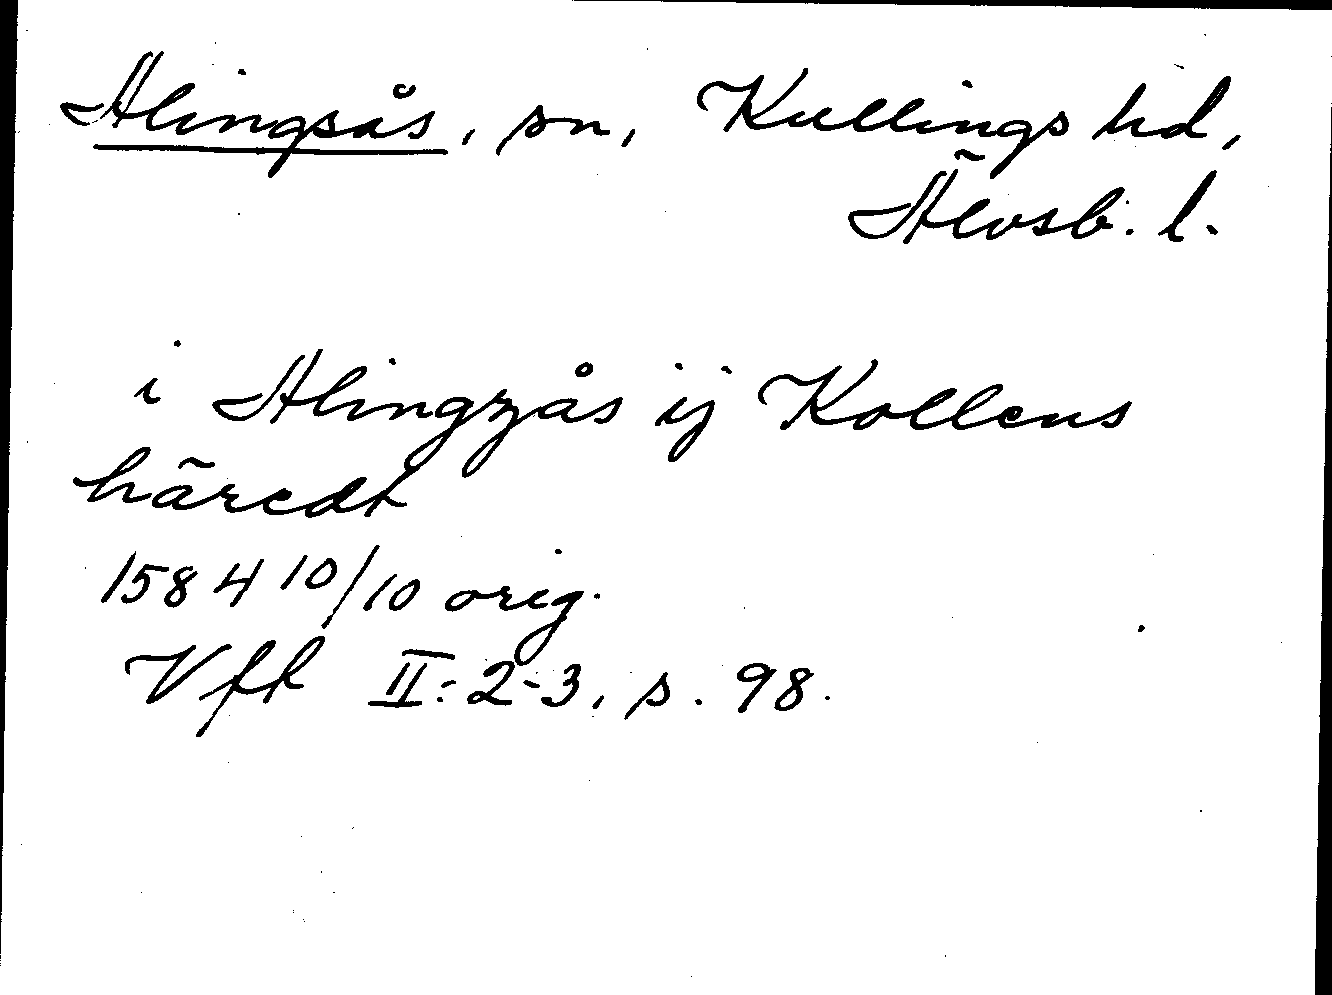 Alingsås, sn, Kullings hd,
Älvsb. l.
i Alingzås ij Kollens
häredt
1584 10/10 orig.
Vft II: 2-3, s. 98.